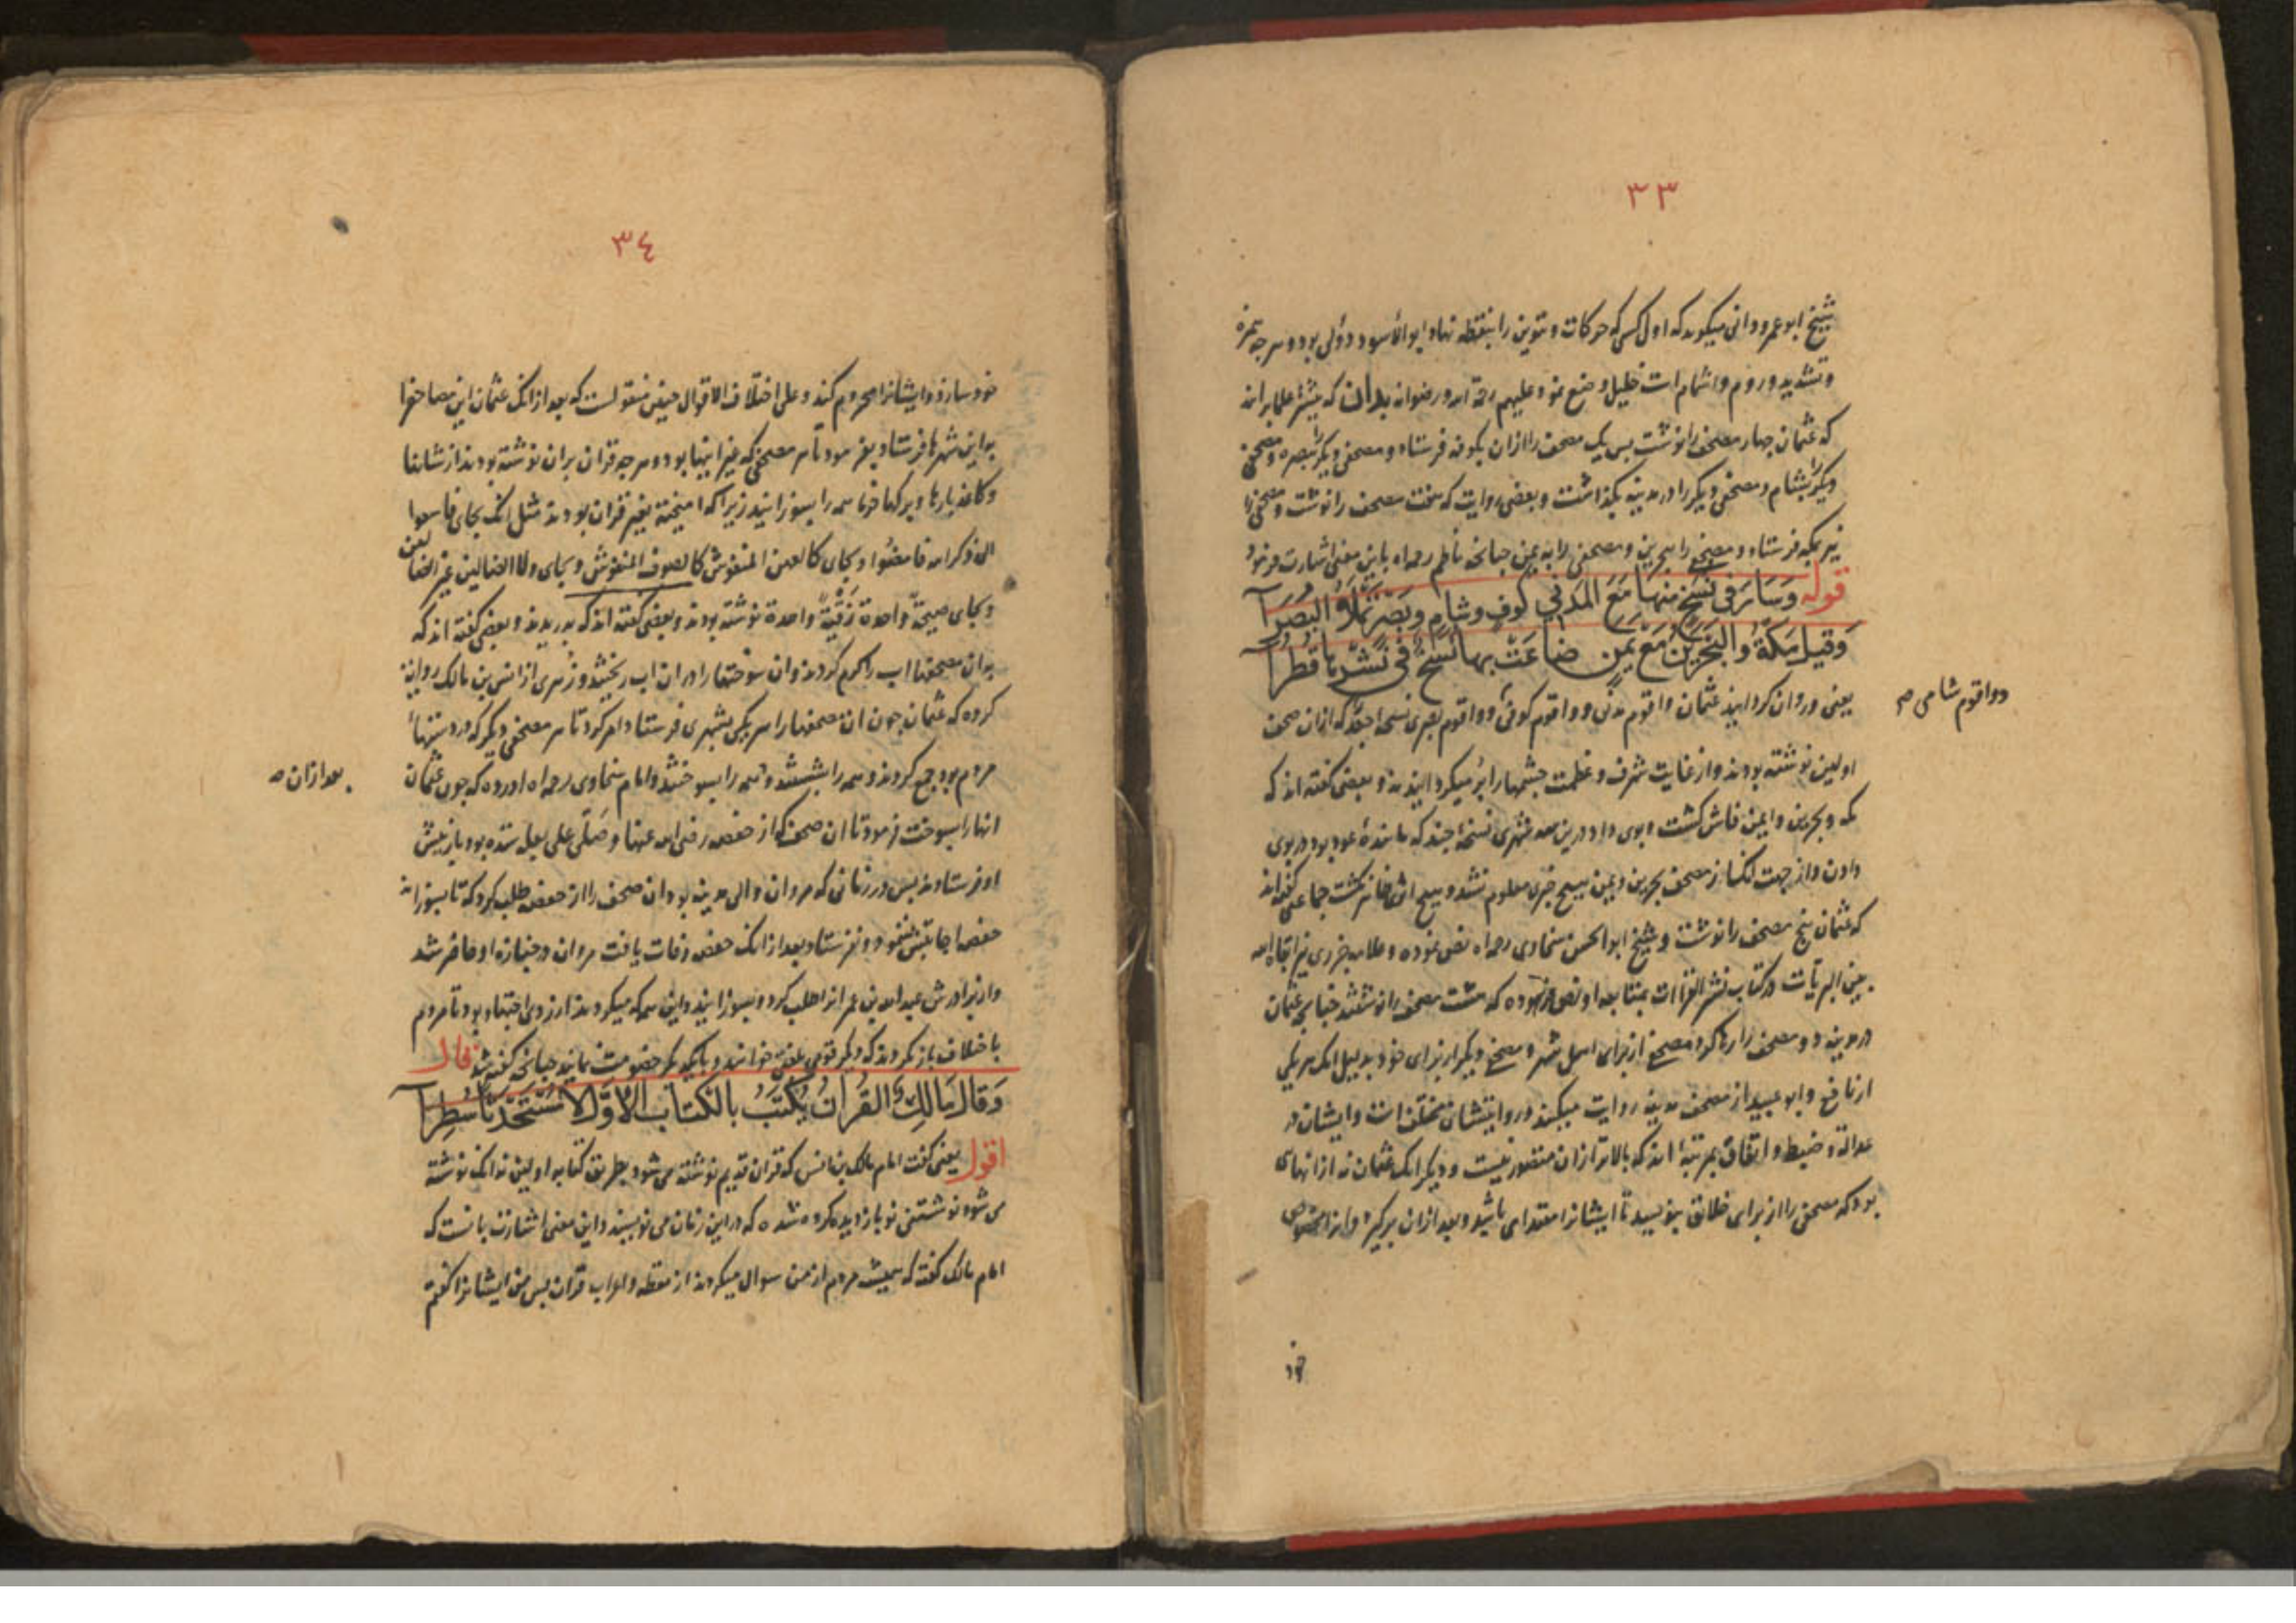 ٣٣
شیخ ابو عمرو دانی میکوید که اول کسی که حرکات و تنوین را بنقطه نهاد ابو الاسود دؤلی بود و هرچه همزه
و تشدید و روم و اشمام است خلیل وضع نمود علیهم رحمة الله ورضوانه بدانک بیشتر علما برانند
که عثمان چهار مصحف را نوشت پس یک مصحف را ازان بکوفه فرستاد و مصحفی دیکر را ببصره و مصحفی
دیکر را بشام و مصحفی دیکر را در مدینه بکذاشت و بعضی روایت که هفت مصحف را نوشت و مصحفی را
نیز بمکه فرستاد و مصحفی را ببحرین و مصحفی را به یمن چنانچه ناظم رحمه الله باین معنی اشارت فرمود
قوله وَسَارَ فی نُسَخٍ مِنها مَعَ المَدَنی کُوفٍ وشامٍ وبَصْرٍ تَمْلَأُ البَصَرَا
وَقیلَ مَکَّةَ والبَحرَینَ مَع یَمَنٍ ضاعَتْ بها نُسَخٌ فی نَشْرِها قُطُرَا
یعنی و روان کردانید عثمان واقوم مدنی و واقوم کوفی و واقوم بصری نسخهٔ چند که ازان صحف
دواقوم شامی صح
اولین نوشته بودند و از غایت شرف و عظمت چشمها را پر میکردانیدند و بعضی کفته اند که
مکه و بحرین و یمن فاش کشت و بوی داد درین سه شهری نسخهٔ چند که مانندهٔ عود بود در بوی
دادن و از جهت انک از مصحف بحرین و یمن هیچ خبری معلوم نشد و هیچ اثر ظاهر نکشت جماعتی کفته اند
که عثمان پنج مصحف را نوشت و شیخ ابو الحسن سخاوی رحمه الله نص نموده و علامه جزری نیز ابقاه الله
بین البریات در کتاب نشر القراات بمتابعه او نص نموده که هشت مصحف را نوشتند چنانچه عثمان
در مدینه دو مصحف را رها کرد مصحفی از برای اهل شهر و مصحفی دیکر از برای خود بدلیل انک هر یکی
از نافع و ابو عبید از مصحف مدینه روایت میکنند و روایتشان مختلف است و ایشان در
عدالة و ضبط و اتقان بمرتبهٔ اند که بالاتر ازان متصور نیست و دیکر انک عثمان نه از انهای
بود که مصحفی را از برای خلائق بنویسد تا ایشانرا مقتدای باشد و بعد ازان برکیرد و انرا مخصوص
خود
٣٤
خود سازد و ایشانرا محروم کند و علی اختلاف الاقوال چنین منقولست که بعد از انک عثمان این مصاحفرا
به این شهرها فرستاد بفرمود تا هر مصحفی که غیر اینها بود و هرچه قران بران نوشته بودند از شانها
و کاغذ پارها و برکها خرما همه را بسوزانند زیرا که امیخته بغیر قران بودند مثل انک بجای فاسعوا
الی ذکر الله فامضوا و بجای کالعهن المنفوش کالصوف المنفوش و بجای ولا الضالین غیر الضالین
و بجای صیحةً واحدة زَقْیَةً واحدة نوشته بودند و بعضی کفته اند که بدریدند و بعضی کفته اند که
بدان مصحفها اب را کرم کردند و ان سوختها را دران اب ریختند و زهری از انس بن مالک روایة
کرده که عثمان چون ان مصحفها را هر یکی بشهری فرستاد امر کرد تا هر مصحفی دیکر که در دستهاء
مردم بود جمع کردند و همه را بشستند و همه را بسوختند و امام سخاوی رحمه الله اورده که چون عثمان
بعد ازان صح
انها را بسوخت فرمود تا ان صحف که از حفصه رضی الله عنها بود باز پیش
او فرستادند پس در زمانی که مروان والی مدینه بود ان صحف را از حفصه طلب کرد که تا بسوزاند
حفصه اجابتش ننمود و نفرستاد بعد از انک حفصه وفات یافت مروان در جنازه او حاضر شد
و از برادرش عبد الله بن عمر انرا طلب کرد و بسوزانید و این همه که میکردند از روی اجتهاد بود تا مردم
باختلاف باز نکردند که دیکر قومی بلغتی خوانند و با یکدیکر خصومت نمایند چنانچه کفته شد قال
وَقالَ مَالِکٌ القُرآنُ یُکْتَبُ بالکتابِ الاوَّلِ لا مُسْتَحْدَثاً سُطِرَا
اقول یعنی کفت امام مالک بن انس که قران قدیم نوشته می شود بطریق کتابه اولین نه انک نوشته
می شود نوشتنی نو بازدیده کرده شده که در این زمان می نویسند و این معنی اشارت بانست که
امام مالک کفت که همیشه مردم از من سوال میکردند از نقطه و اعراب قران پس من ایشانرا کفتم